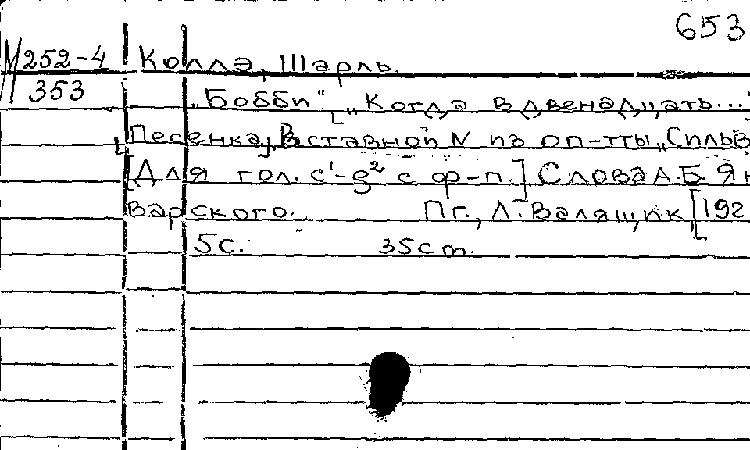 653
М 252-4
353
Колла, Шарль.
„Бобби". [„Когда в двенадцать..."
Песенка]. Вставной N из оп-тты „Сильв
[Для гол. c¹-g² с ф-п.] Слова А.Б. Ян
варского. Пг., Л. Валящик, [192
5с. 35ст.